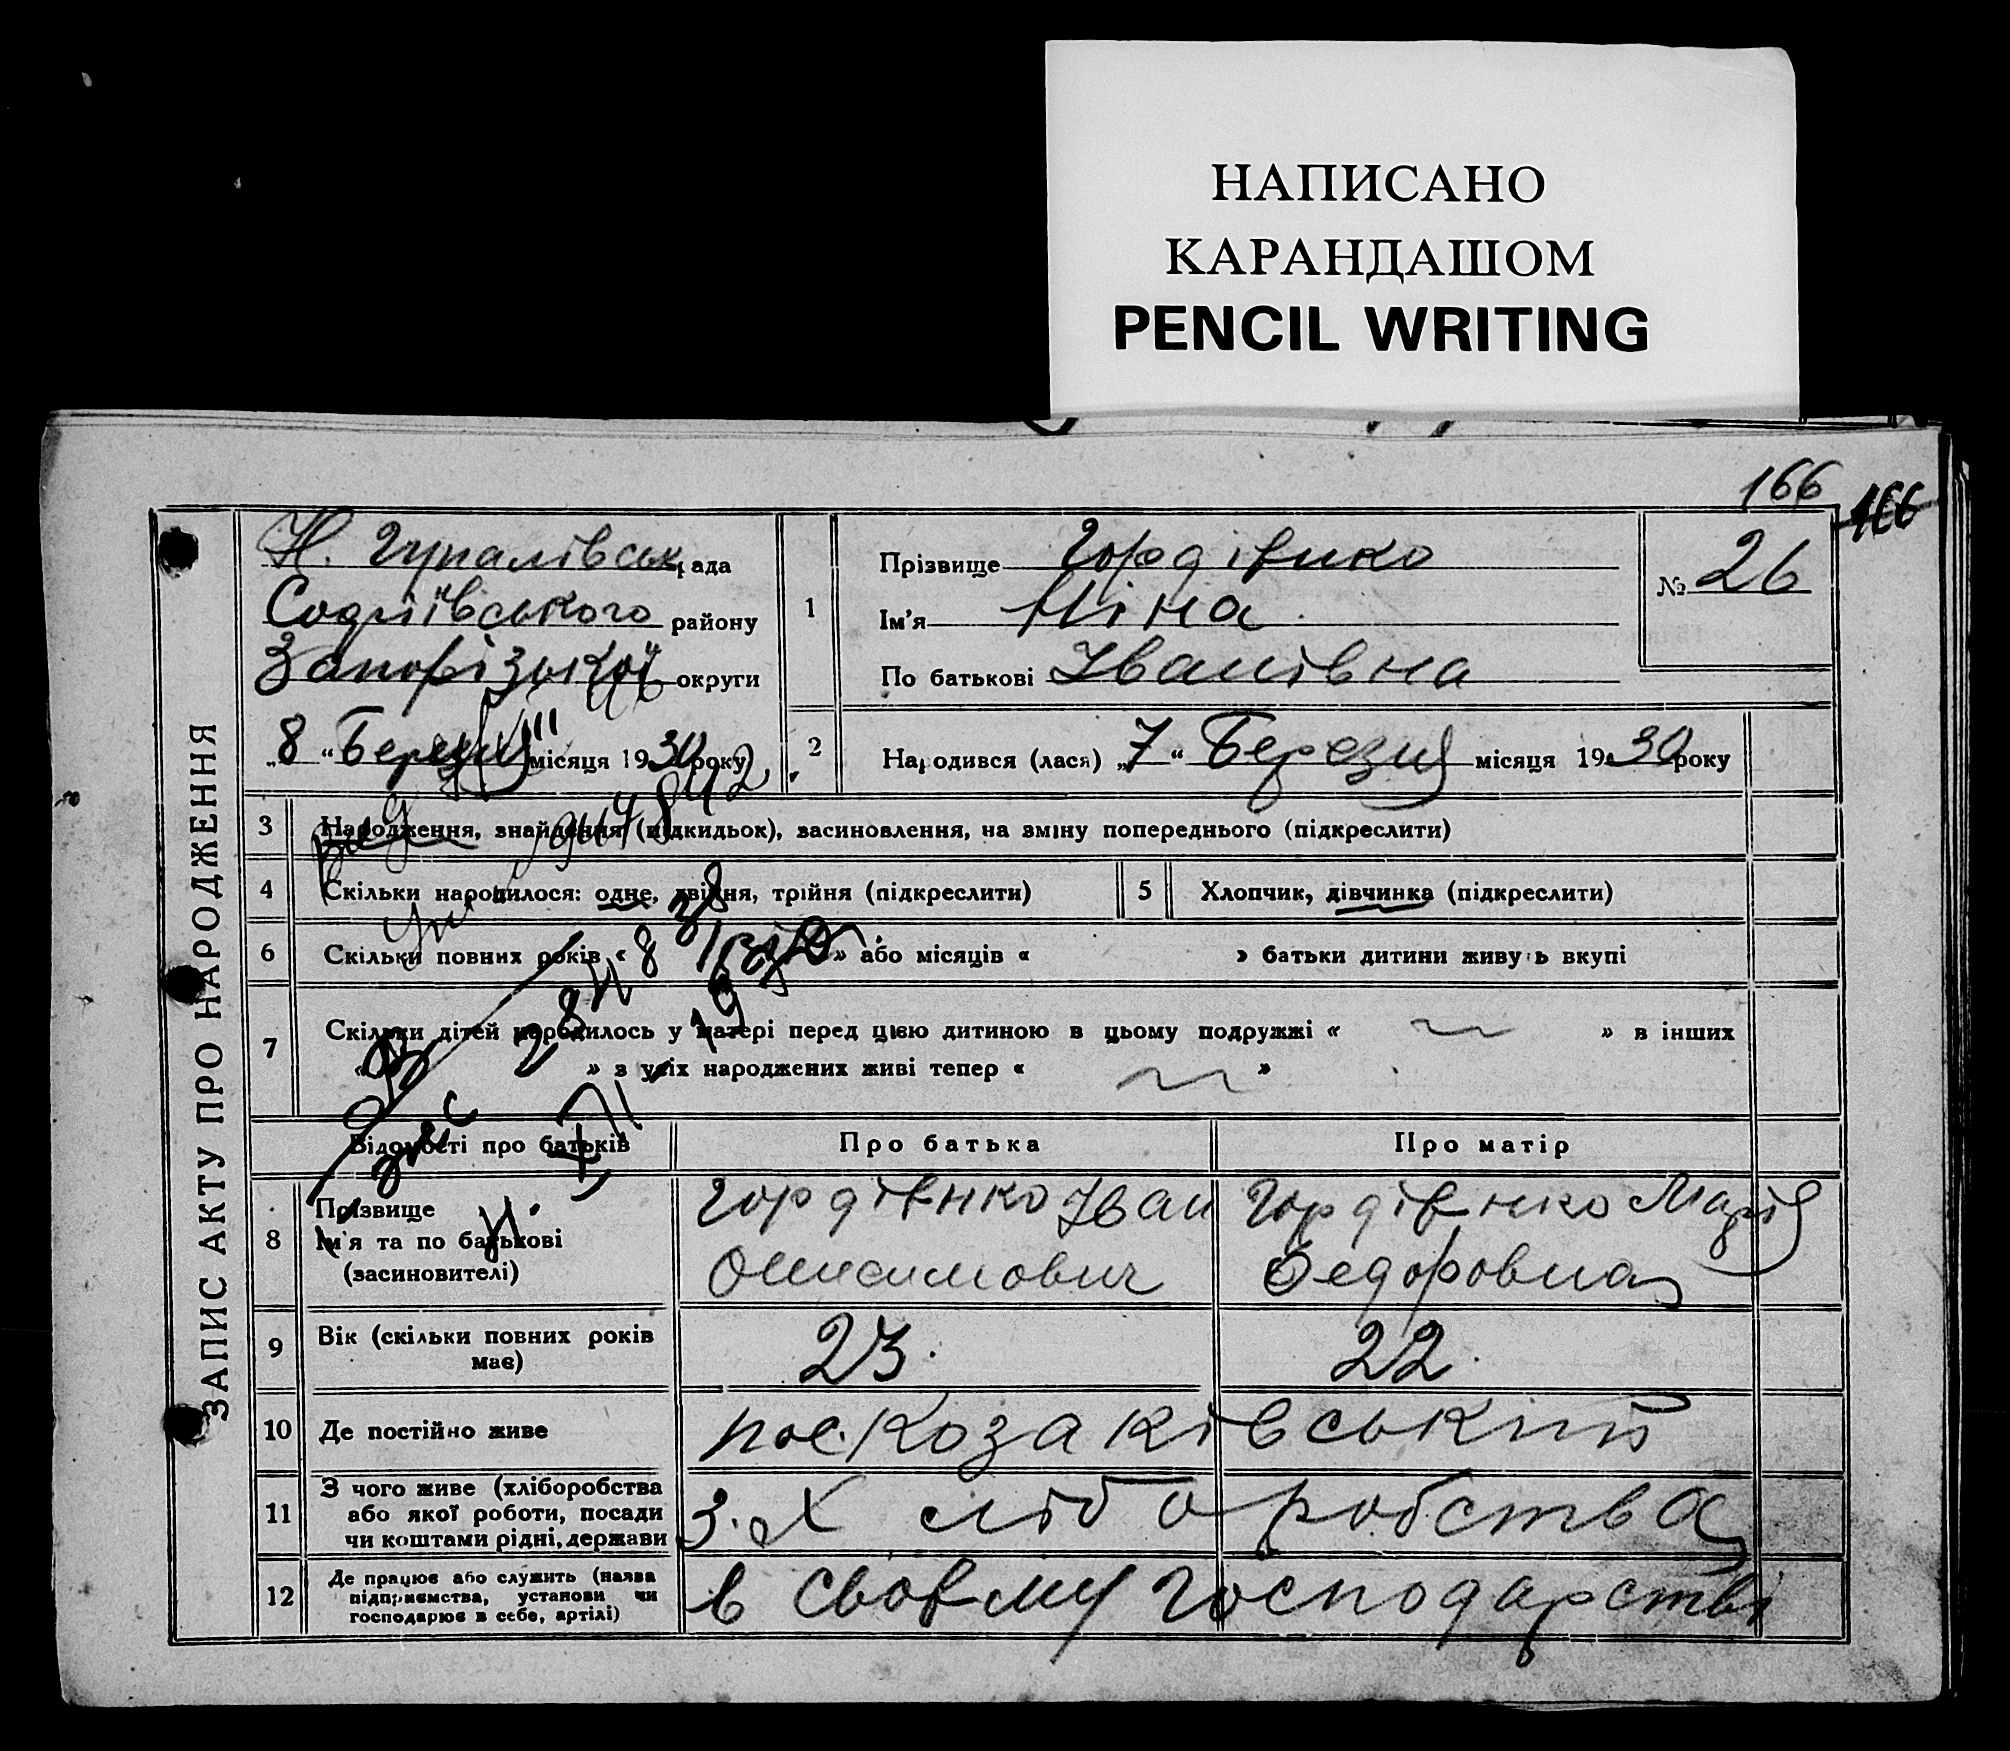 НАПИСАНО
КАРАНДАШОМ
PENCIL WRITING
166
166
ЗАПИС АКТУ ПРО НАРОДЖЕННЯ
Н. Гупалівськ рада
Софіївського району
Запорізької округи
„8“ Березня місяця 1930 року
1
Прізвище Гордієнко
Ім'я Ніна
По батькові Іванівна
№ 26
2 Народився (лася) „7“ Березня місяця 1930 року
3 Народження, знайдення (підкидьок), засиновлення, на зміну попереднього (підкреслити)
4 Скільки народилося: одне, двійня, трійня (підкреслити)
5 Хлопчик, дівчинка (підкреслити)
6 Скільки повних років « » або місяців « » батьки дитини живуть вкупі
7 Скільки дітей народилось у матері перед цією дитиною в цьому подружжі « » в інших
« » з усіх народжених живі тепер « »
Відомості про батьків Про батька Про матір
8 Прізвище
Ім'я та по батькові
(засиновителі)
Гордієнко Іван
Онисимович
Гордієнко Марія
Федоровна
9 Вік (скільки повних років
має)
23.
22.
10 Де постійно живе
пос. Козаківський
11 З чого живе (хліборобства
або якої роботи, посади
чи коштами рідні, держави
З. Хліборобства
12 Де працює або служить (назва
підприємства, установи чи
господарює в себе, артілі)
в своєму господарстві